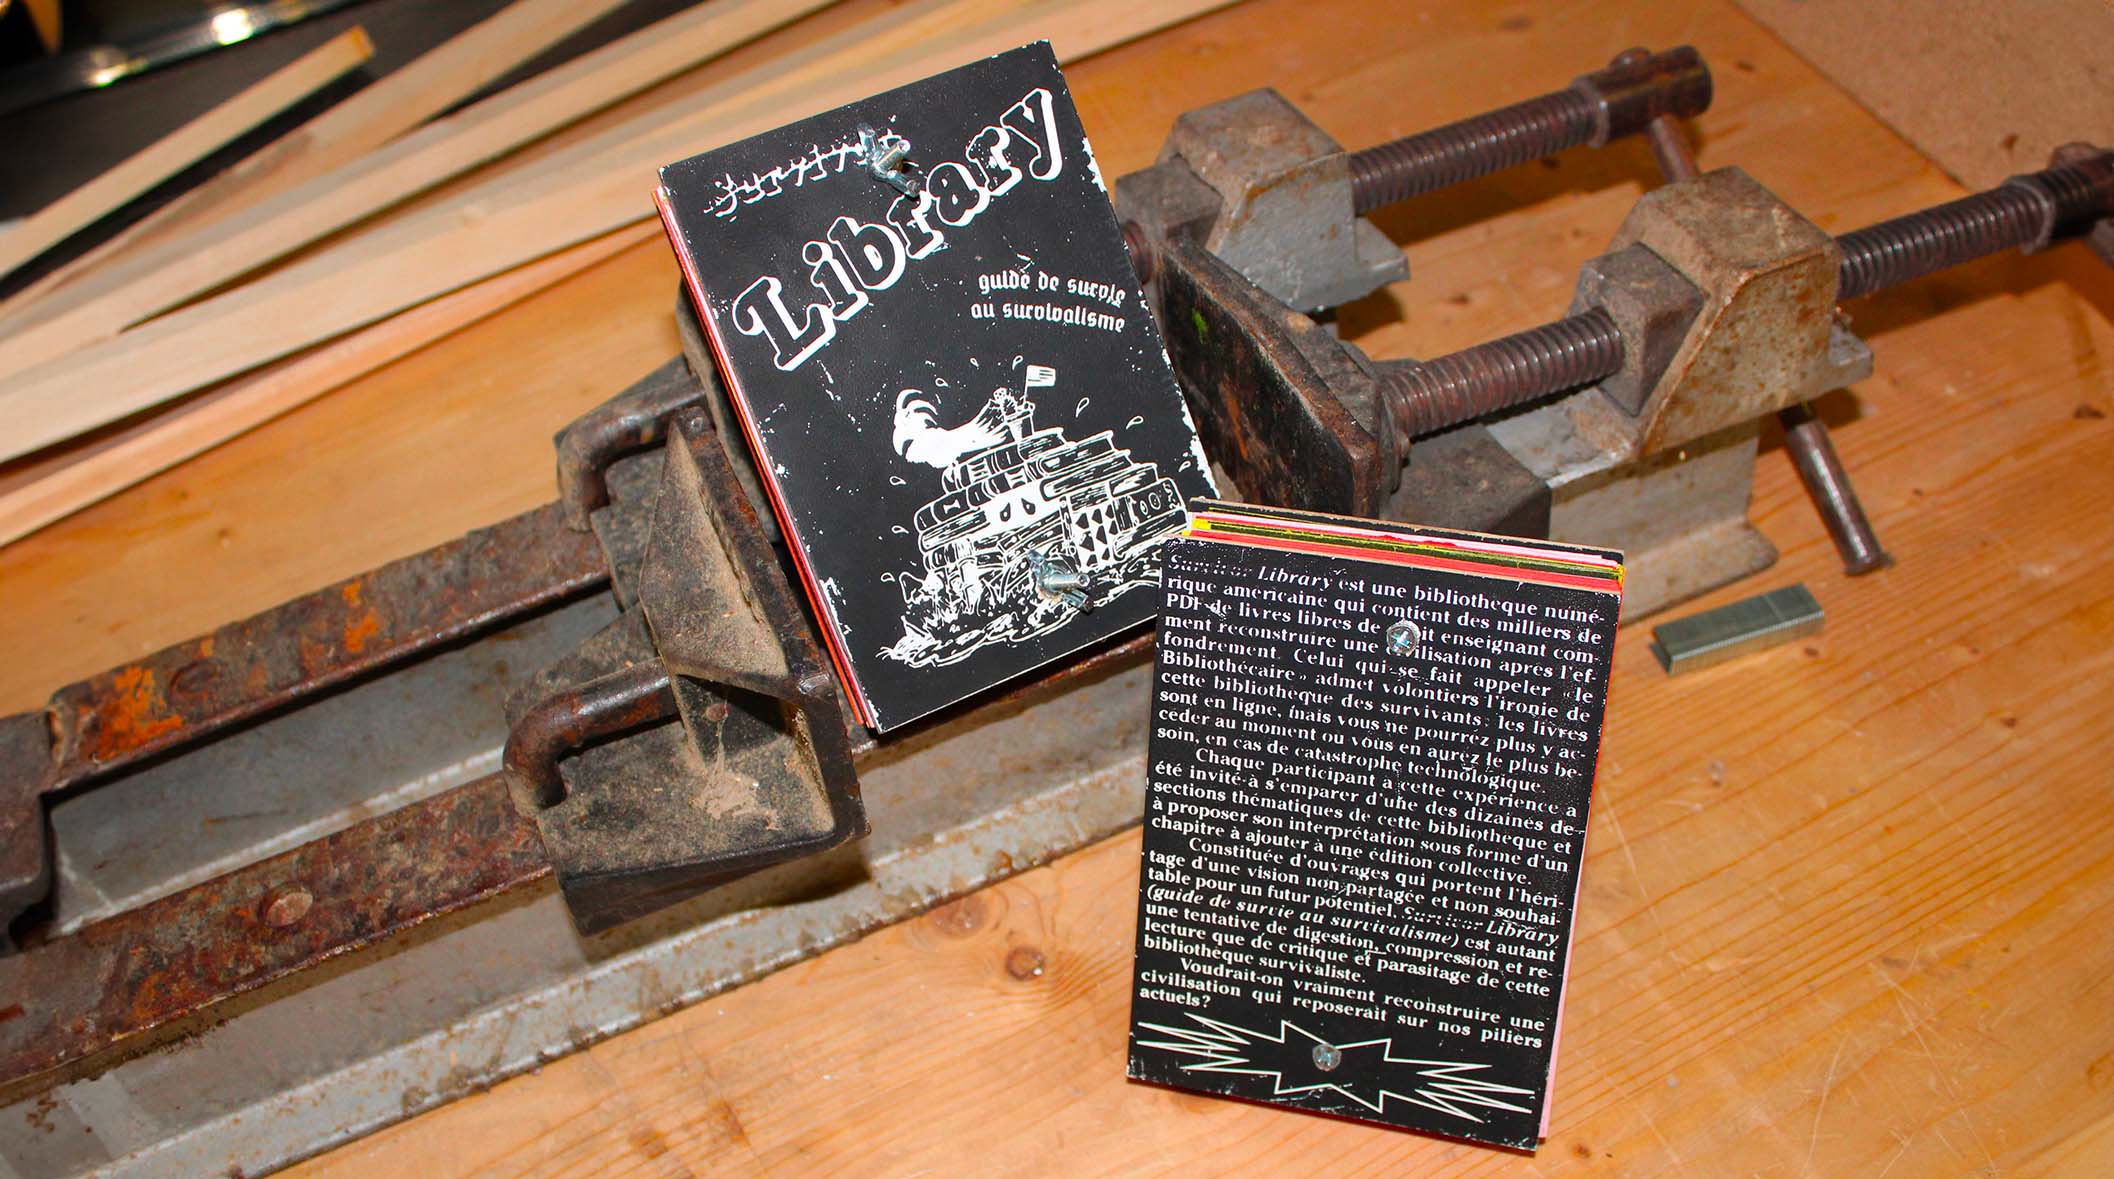 Survivor
Library
guide de survie
au survivalisme
Survivor Library est une bibliothèque numé-
rique américaine qui contient des milliers de
PDF de livres libres de droit enseignant com-
ment reconstruire une civilisation après l'ef-
fondrement. Celui qui se fait appeler « le
Bibliothécaire » admet volontiers l'ironie de
cette bibliothèque des survivants: les livres
sont en ligne, mais vous ne pourrez plus y ac-
céder au moment où vous en aurez le plus be-
soin, en cas de catastrophe technologique.
Chaque participant à cette expérience a
été invité à s'emparer d'une des dizaines de
sections thématiques de cette bibliothèque et
à proposer son interprétation sous forme d'un
chapitre à ajouter à une édition collective.
Constituée d'ouvrages qui portent l'héri-
tage d'une vision non partagée et non souhai-
table pour un futur potentiel, Survivor Library
(guide de survie au survivalisme) est autant
une tentative de digestion, compression et re-
lecture que de critique et parasitage de cette
bibliothèque survivaliste.
Voudrait-on vraiment reconstruire une
civilisation qui reposerait sur nos piliers
actuels?